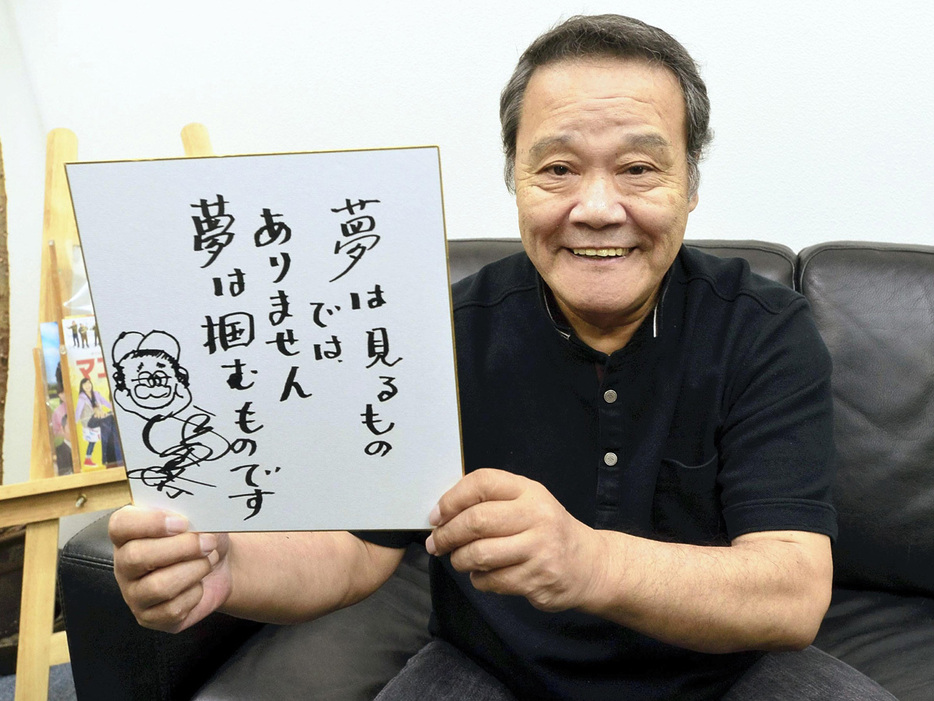 夢は見るもの
では
ありません
夢は掴むものです
マコ